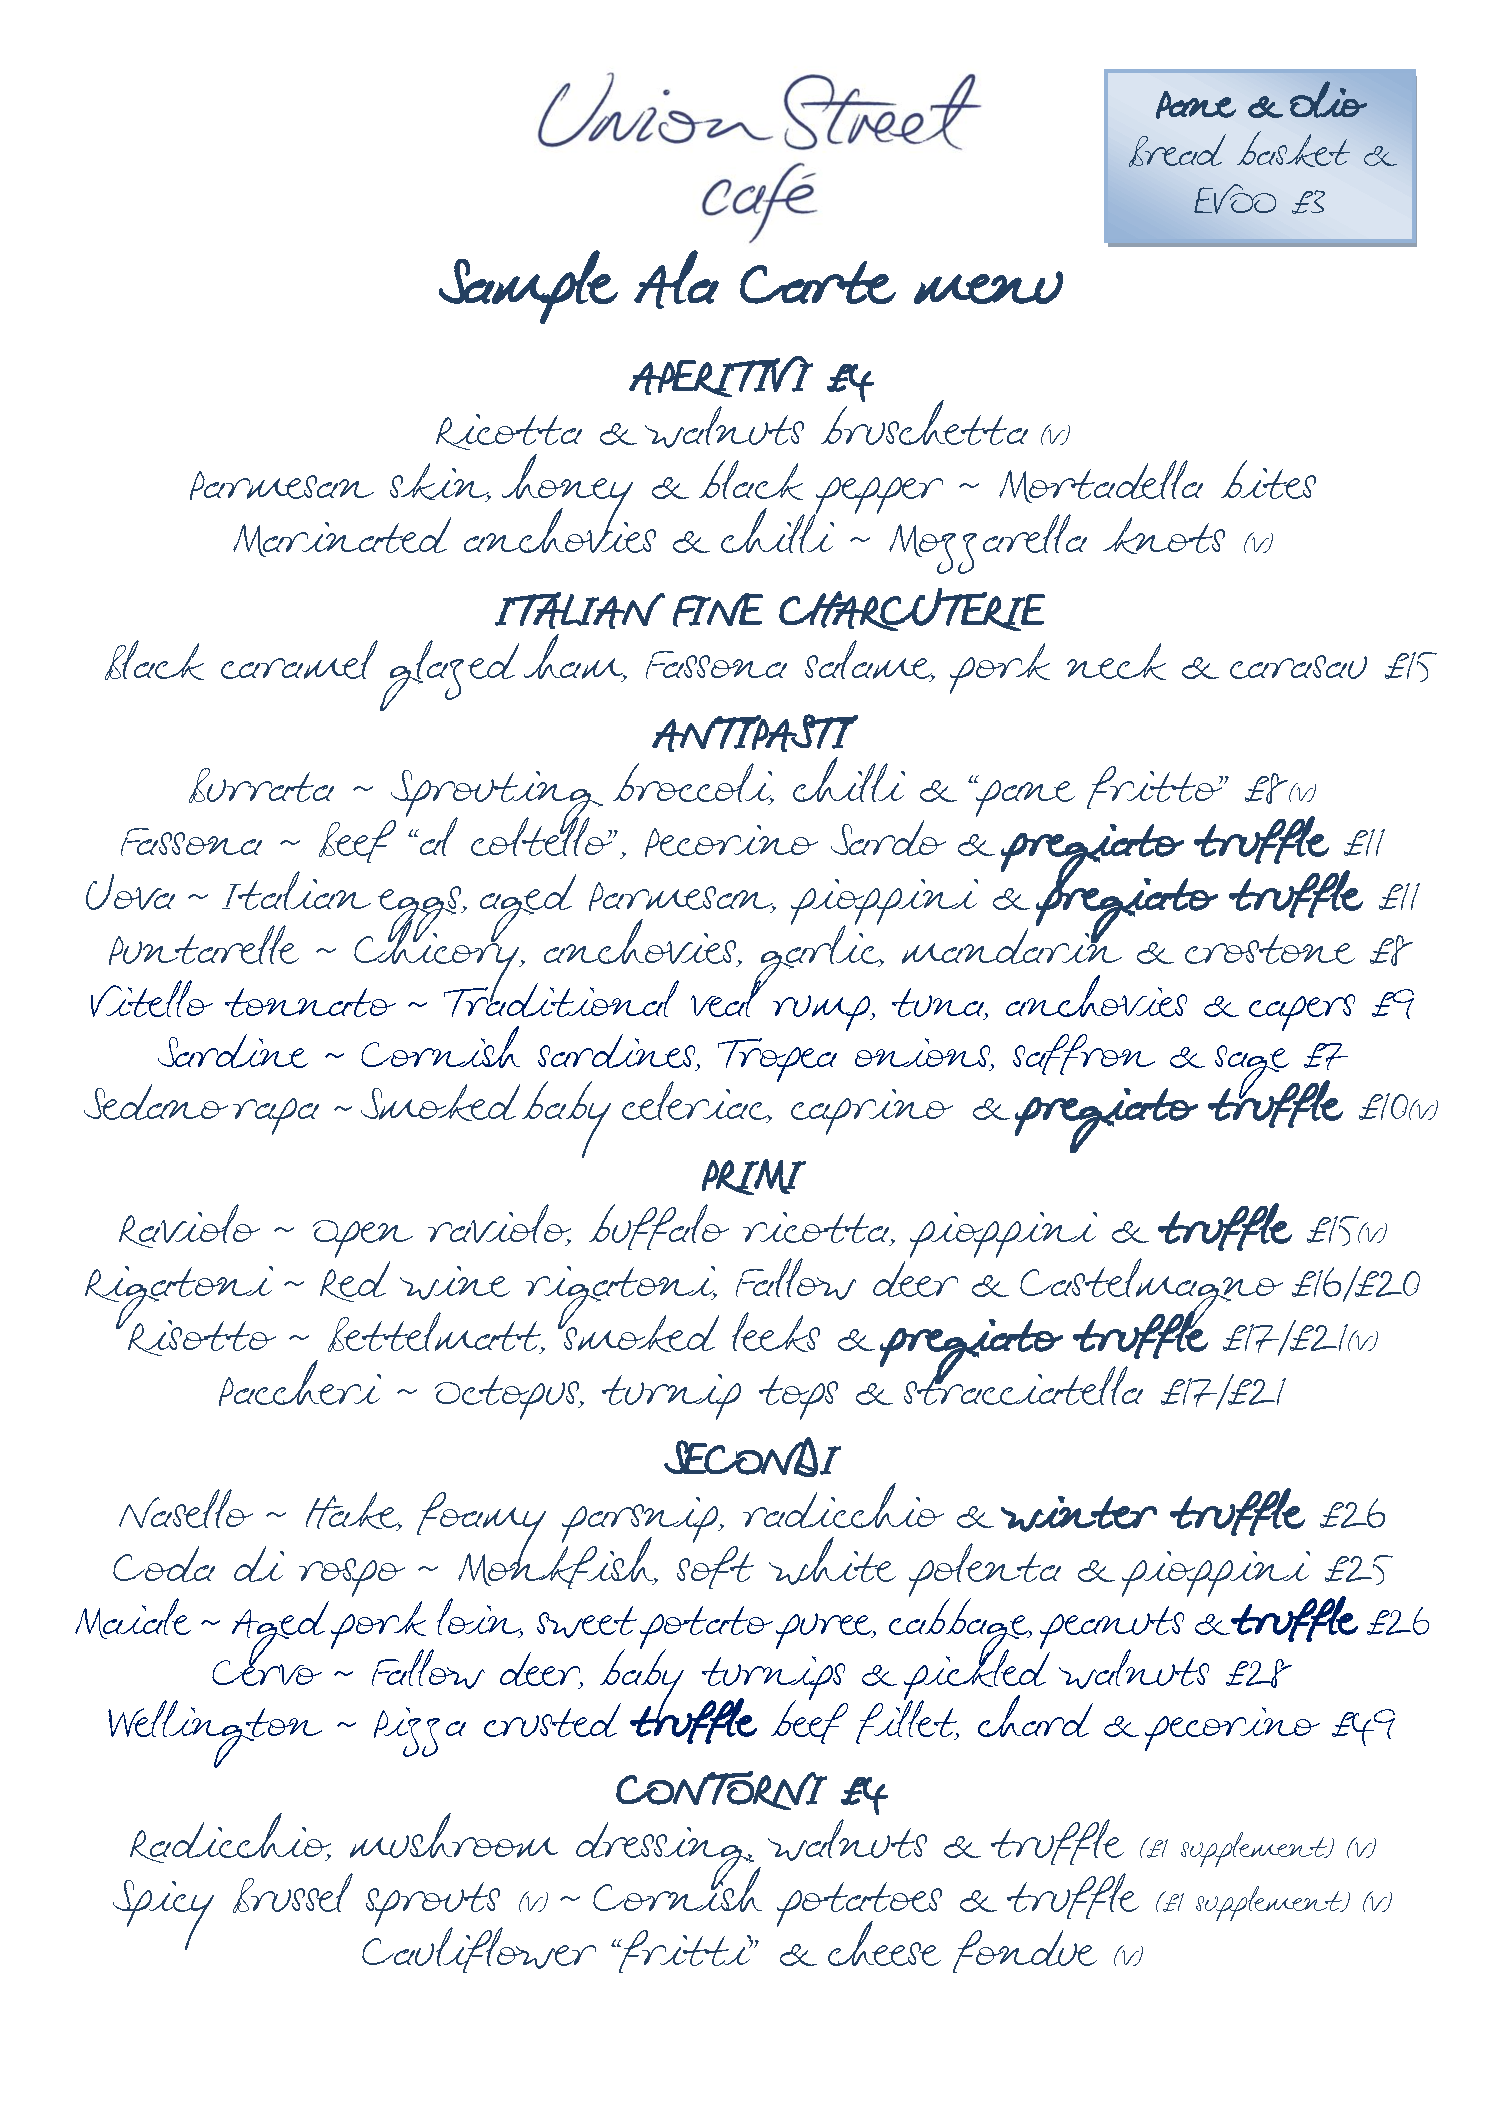 Union Street
café
Pane & Olio
Bread basket &
EVOO £3
Sample Ala Carte menu
APERITIVI £4
Ricotta & walnuts bruschetta (v)
Parmesan skin, honey & black pepper ~ Mortadella bites
Marinated anchovies & chilli ~ Mozzarella knots (v)
ITALIAN FINE CHARCUTERIE
Black caramel glazed ham, Fassona salame, pork neck & carasau £15
ANTIPASTI
Burrata ~ Sprouting broccoli, chilli & “pane fritto” £8(v)
Fassona ~ Beef “al coltello”, Pecorino Sardo & pregiato truffle £11
Uova ~ Italian eggs, aged Parmesan, pioppini & pregiato truffle £11
Puntarelle ~ Chicory, anchovies, garlic, mandarin & crostone £8
Vitello tonnato ~ Traditional veal rump, tuna, anchovies & capers £9
Sardine ~ Cornish sardines, Tropea onions, saffron & sage £7
Sedano rapa ~ Smoked baby celeriac, caprino & pregiato truffle £10(v)
PRIMI
Raviolo ~ Open raviolo, buffalo ricotta, pioppini & truffle £15(v)
Rigatoni ~ Red wine rigatoni, Fallow deer & Castelmagno £16/£20
Risotto ~ Bettelmatt, smoked leeks & pregiato truffle £17/£21(v)
Paccheri ~ Octopus, turnip tops & stracciatella £17/£21
SECONDI
Nasello ~ Hake, foamy parsnip, radicchio & winter truffle £26
Coda di rospo ~ Monkfish, soft white polenta & pioppini £25
Maiale ~ Aged pork loin, sweet potato puree, cabbage, peanuts & truffle £26
Cervo ~ Fallow deer, baby turnips & pickled walnuts £28
Wellington ~ Pizza crusted truffle beef fillet, chard & pecorino £49
CONTORNI £4
Radicchio, mushroom dressing, walnuts & truffle (£1 supplement) (v)
Spicy Brussel sprouts (v) ~ Cornish potatoes & truffle (£1 supplement) (v)
Cauliflower “fritti” & cheese fondue (v)